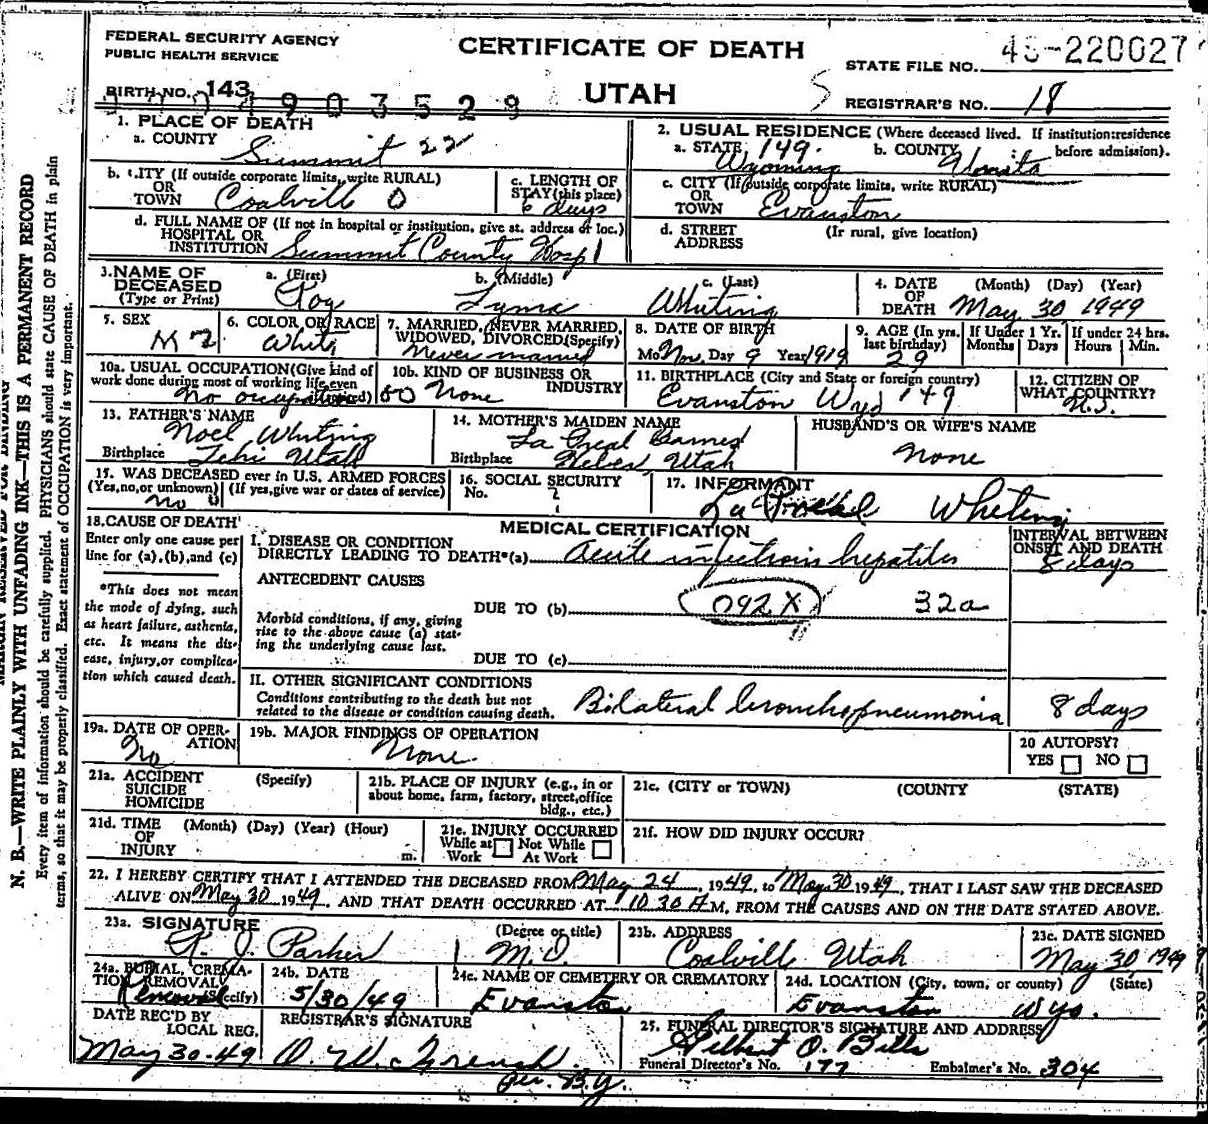 FEDERAL SECURITY AGENCY
PUBLIC HEALTH SERVICE
CERTIFICATE OF DEATH
UTAH
STATE FILE NO. 49-220027
REGISTRAR'S NO. 18
BIRTH NO. 143
0 0 0 4 9 0 3 5 2 9
1. PLACE OF DEATH
a. COUNTY Summit 22
b. CITY (If outside corporate limits, write RURAL)
OR
TOWN Coalville 0
c. LENGTH OF
STAY (this place)
6 days
d. FULL NAME OF (If not in hospital or institution, give st. address or loc.)
HOSPITAL OR
INSTITUTION Summit County Hosp 1
2. USUAL RESIDENCE (Where deceased lived. If institution: residence
before admission).
a. STATE 149. Wyoming b. COUNTY Uinta
c. CITY (If outside corporate limits, write RURAL)
OR
TOWN Evanston
d. STREET (If rural, give location)
ADDRESS
3. NAME OF DECEASED
(Type or Print)
a. (First) Roy
b. (Middle)
c. (Last) Whiting
4. DATE OF DEATH (Month) (Day) (Year)
May 30 1949
5. SEX M
6. COLOR OR RACE White
7. MARRIED, NEVER MARRIED,
WIDOWED, DIVORCED (Specify)
Never married
8. DATE OF BIRTH
Mo. Nov. Day 9 Year 1919
9. AGE (In yrs. last birthday) 29
If Under 1 Yr. Months Days
If under 24 hrs. Hours Min.
10a. USUAL OCCUPATION (Give kind of
work done during most of working life, even
if retired)
No occupation
10b. KIND OF BUSINESS OR
INDUSTRY
00 None
11. BIRTHPLACE (City and State or foreign country)
Evanston Wyo 149
12. CITIZEN OF
WHAT COUNTRY?
U.S.
13. FATHER'S NAME
Noel Whiting
Birthplace Lehi Utah
14. MOTHER'S MAIDEN NAME
Birthplace Heber Utah
HUSBAND'S OR WIFE'S NAME
None
15. WAS DECEASED ever in U.S. ARMED FORCES
(Yes, no, or unknown) (If yes, give war or dates of service)
no 0
16. SOCIAL SECURITY
No. ?
17. INFORMANT
Whiting
18. CAUSE OF DEATH
Enter only one cause per
line for (a), (b), and (c)
*This does not mean
the mode of dying, such
as heart failure, asthenia,
etc. It means the dis-
ease, injury, or complica-
tion which caused death.
MEDICAL CERTIFICATION
INTERVAL BETWEEN
ONSET AND DEATH
I. DISEASE OR CONDITION
DIRECTLY LEADING TO DEATH*(a) acute infectious hepatitis
8 days
ANTECEDENT CAUSES
Morbid conditions, if any, giving
rise to the above cause (a) stat-
ing the underlying cause last.
DUE TO (b) 092X 32a
DUE TO (c)
II. OTHER SIGNIFICANT CONDITIONS
Conditions contributing to the death but not
related to the disease or condition causing death.
Bilateral bronchopneumonia 8 days
19a. DATE OF OPER-
ATION
No
19b. MAJOR FINDINGS OF OPERATION
None.
20 AUTOPSY?
YES NO
21a. ACCIDENT (Specify)
SUICIDE
HOMICIDE
21b. PLACE OF INJURY (e.g., in or
about home, farm, factory, street, office
bldg., etc.)
21c. (CITY or TOWN) (COUNTY (STATE)
21d. TIME (Month) (Day) (Year) (Hour)
OF
INJURY m.
21e. INJURY OCCURRED
While at Work Not While At Work
21f. HOW DID INJURY OCCUR?
22. I HEREBY CERTIFY THAT I ATTENDED THE DECEASED FROM May 24, 1949, to May 30 1949, THAT I LAST SAW THE DECEASED
ALIVE ON May 30 1949, AND THAT DEATH OCCURRED AT 10 30 A M, FROM THE CAUSES AND ON THE DATE STATED ABOVE.
23a. SIGNATURE (Degree or title)
R. J. Parker M.D.
23b. ADDRESS
Coalville Utah
23c. DATE SIGNED
May 30 1949
24a. BURIAL, CREMA-
TION, REMOVAL (Specify)
Removal
24b. DATE
5/30/49
24c. NAME OF CEMETERY OR CREMATORY
Evanston
24d. LOCATION (City, town, or county) (State)
Evanston Wyo.
DATE REC'D BY
LOCAL REG.
May 30-49
REGISTRAR'S SIGNATURE
O. W. French
Per. B.Y.
25. FUNERAL DIRECTOR'S SIGNATURE AND ADDRESS
Gilbert O. Bills
Funeral Director's No. 177 Embalmer's No. 304
MARGIN RESERVED FOR BINDING
N. B.—WRITE PLAINLY WITH UNFADING INK—THIS IS A PERMANENT RECORD
Every item of information should be carefully supplied. PHYSICIANS should state CAUSE OF DEATH in plain
terms, so that it may be properly classified. Exact statement of OCCUPATION is very important.